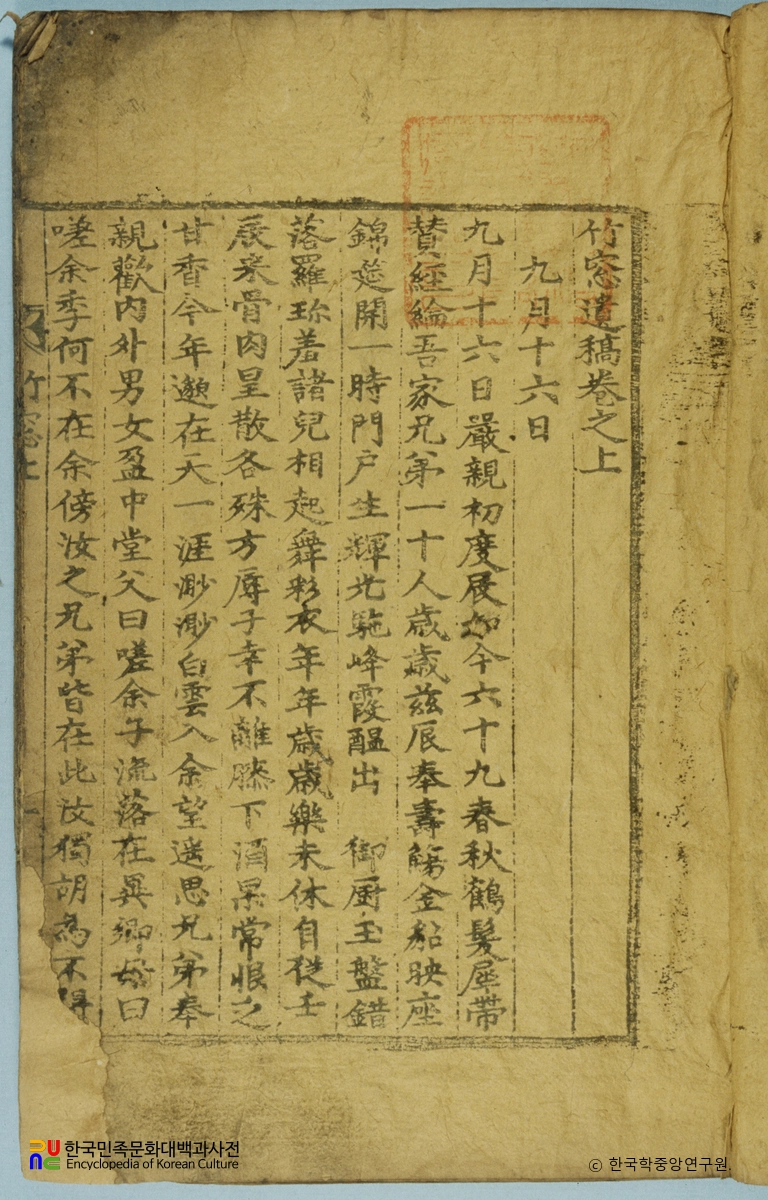 竹窓遺稿卷之上
九月十六日
九月十六日嚴親初度辰如今六十九春秋鶴髮犀帶
賛經綸吾家兄弟一十人歲歲茲辰奉壽觴金船映座
錦筵開一時門戶生輝光駝峰霞醞出 御厨玉盤錯
落羅珎羞諸兒相起舞彩衣年年歲歲樂未休自從壬
辰來骨肉星散各殊方辱子幸不離膝下酒果常恨乏
甘香今年邈在天一涯渺渺白雲入余望遥思兄弟奉
親歡內外男女盈中堂父曰嗟余子流落在異鄉母曰
嗟余季何不在余傍汝之兄弟皆在此汝獨胡為不得
竹窓上
한국민족문화대백과사전
Encyclopedia of Korean Culture
© 한국학중앙연구원.